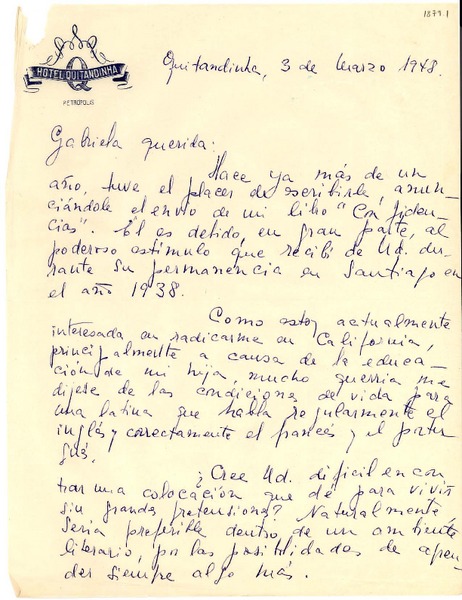 1879.1
HOTEL QUITANDINHA
Q
PETROPOLIS
Quitandinha, 3 de Marzo 1948.
Gabriela querida:
Hace ya más de un
año, tuve el placer de escribirle, anun-
ciándole el envio de mi libro "Confiden-
cias". El es debido, en gran parte, al
poderoso estímulo que recibí de Ud. du-
rante su permanencia en Santiago en
el año 1938.
Como estoy actualmente
interesada en radicarme en California,
principalmente a causa de la educa-
ción de mi hija, mucho querria me
dijese de las condiciones de vida para
una latina que habla regularmente el
inglés y correctamente el francés y el portu-
gués.
¿Cree Ud. dificil encon
trar una colocación que dé para vivir
sin grandes pretensiones? Naturalmente
seria preferible dentro de un ambiente
literario, por las posibilidades de apren-
der siempre algo más.